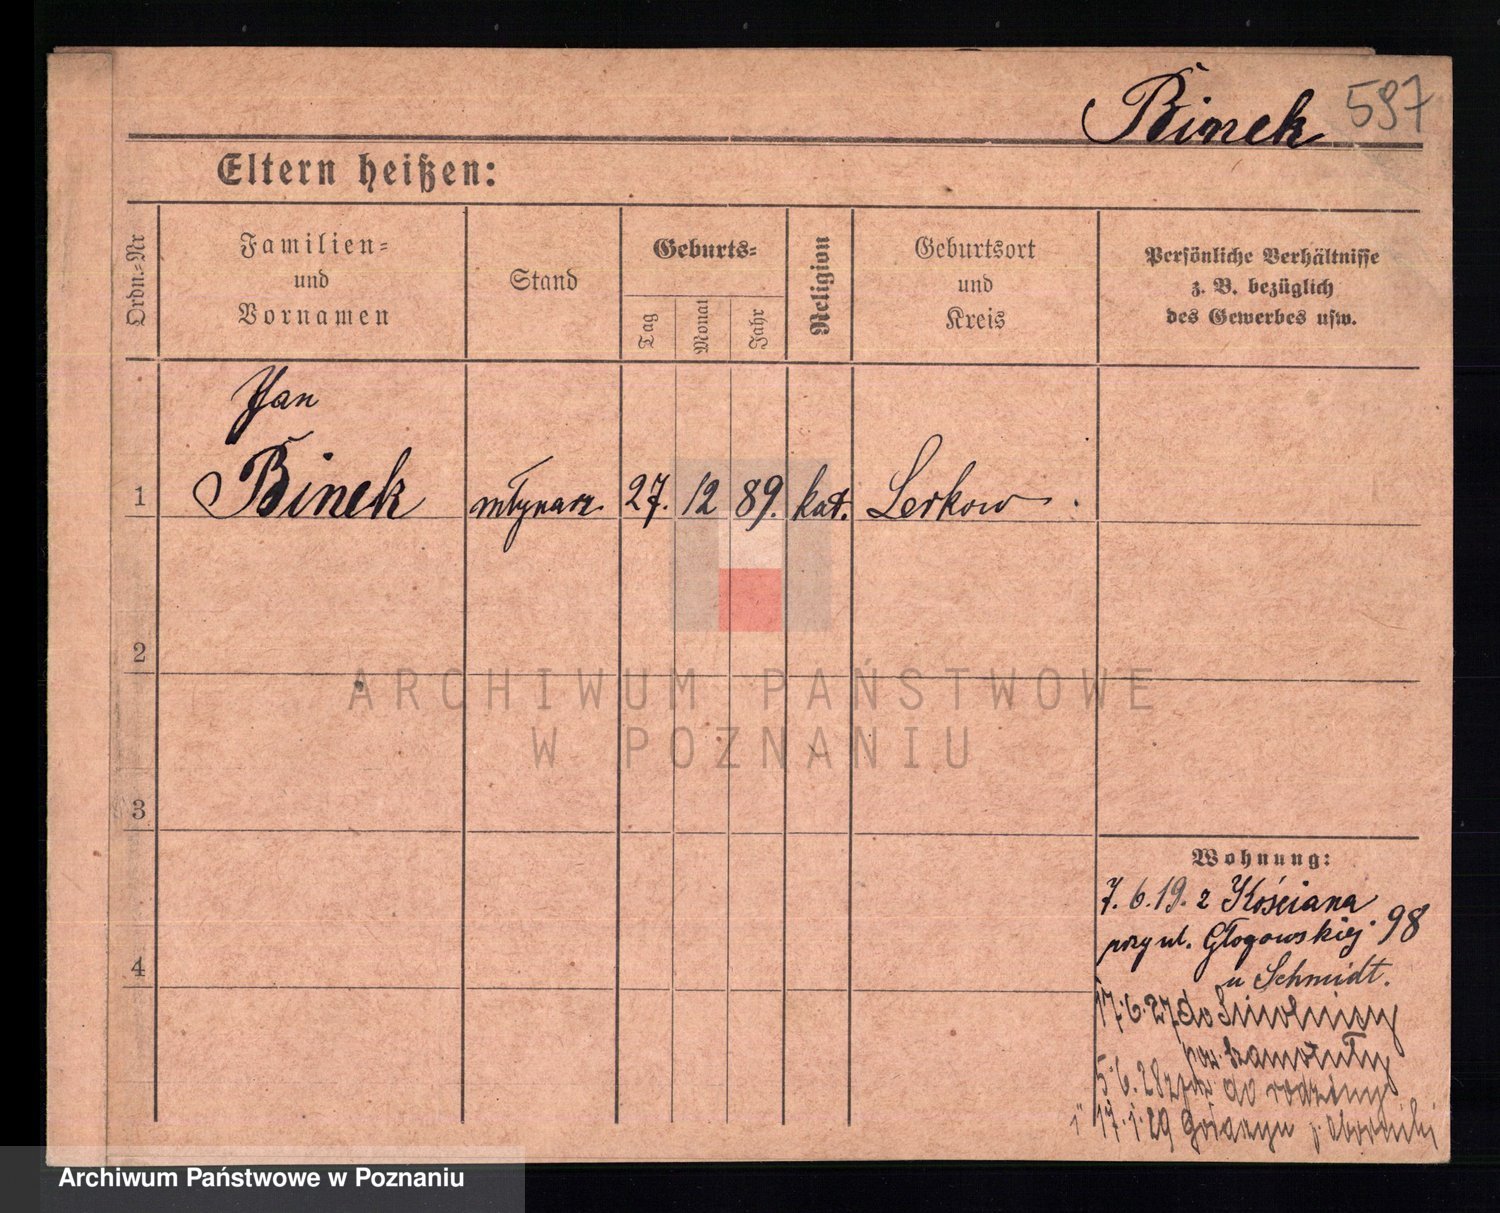 Binek 597
Eltern heißen:
Ordn.-Nr
Familien-
und
Vornamen
Stand
Geburts-
Tag
Monat
Jahr
Religion
Geburtsort
und
Kreis
Persönliche Verhältnisse
z. B. bezüglich
des Gewerbes usw.
Jan
1 Binek młynarz 27. 12 89. kat. Lerkow
2
3
4
Wohnung:
7. 6. 19. z Kościana
przy ul. Głogowskiej 98
u Schmidt.
17.6.27 do
pow. Szamotuły
5.6.28 do rodziny
17.1.29
ARCHIWUM PAŃSTWOWE
W POZNANIU
Archiwum Państwowe w Poznaniu